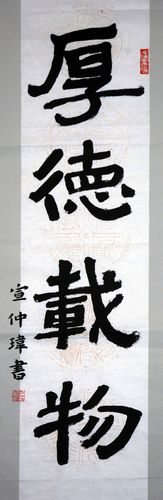 厚德載物
宣仲瑋書